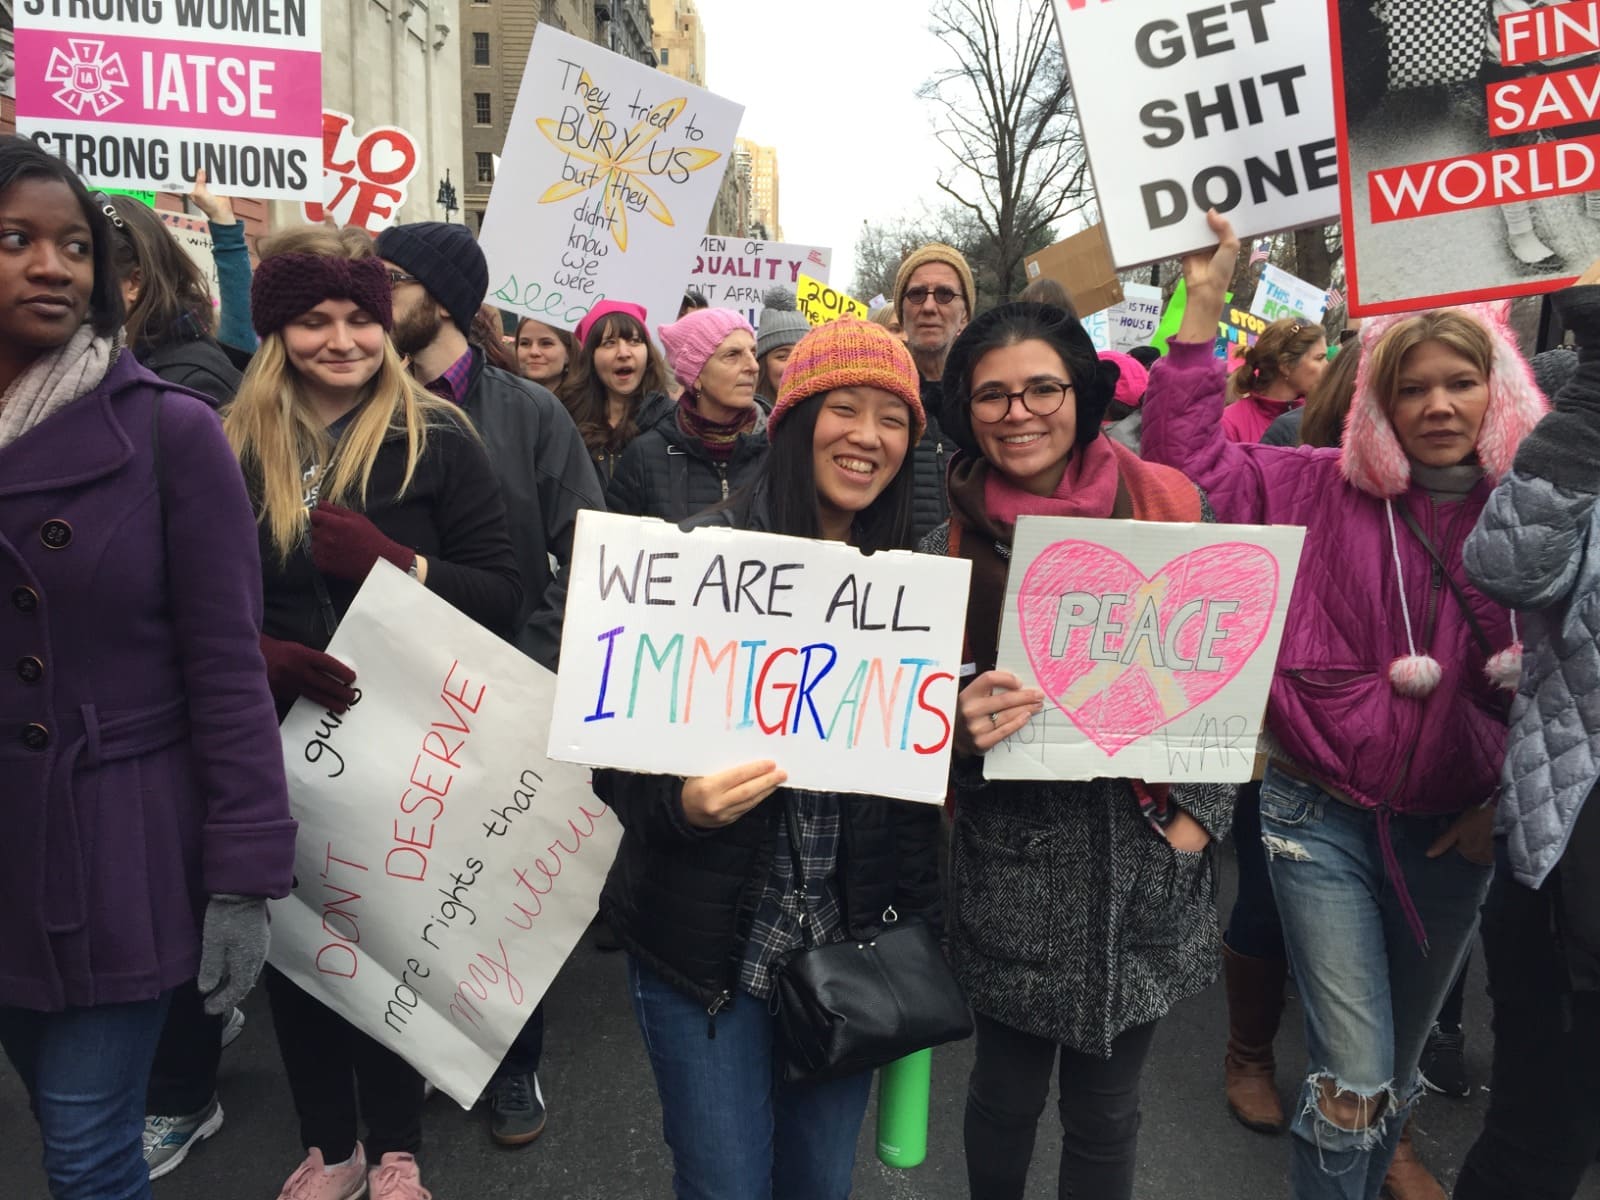 STRONG WOMEN
IATSE
STRONG UNIONS
LO
VE
They tried to
BURY US
but they
didn't
know
we
were
seed
MEN OF
QUALITY
2018
GET
SHIT
DONE
FIN
SAV
WORLD
THIS IS
NOT
STOP
IS THE
HOUSE
guns
DON'T
DESERVE
more rights than
my uteru
WE ARE ALL
IMMIGRANTS
PEACE
NOT WAR